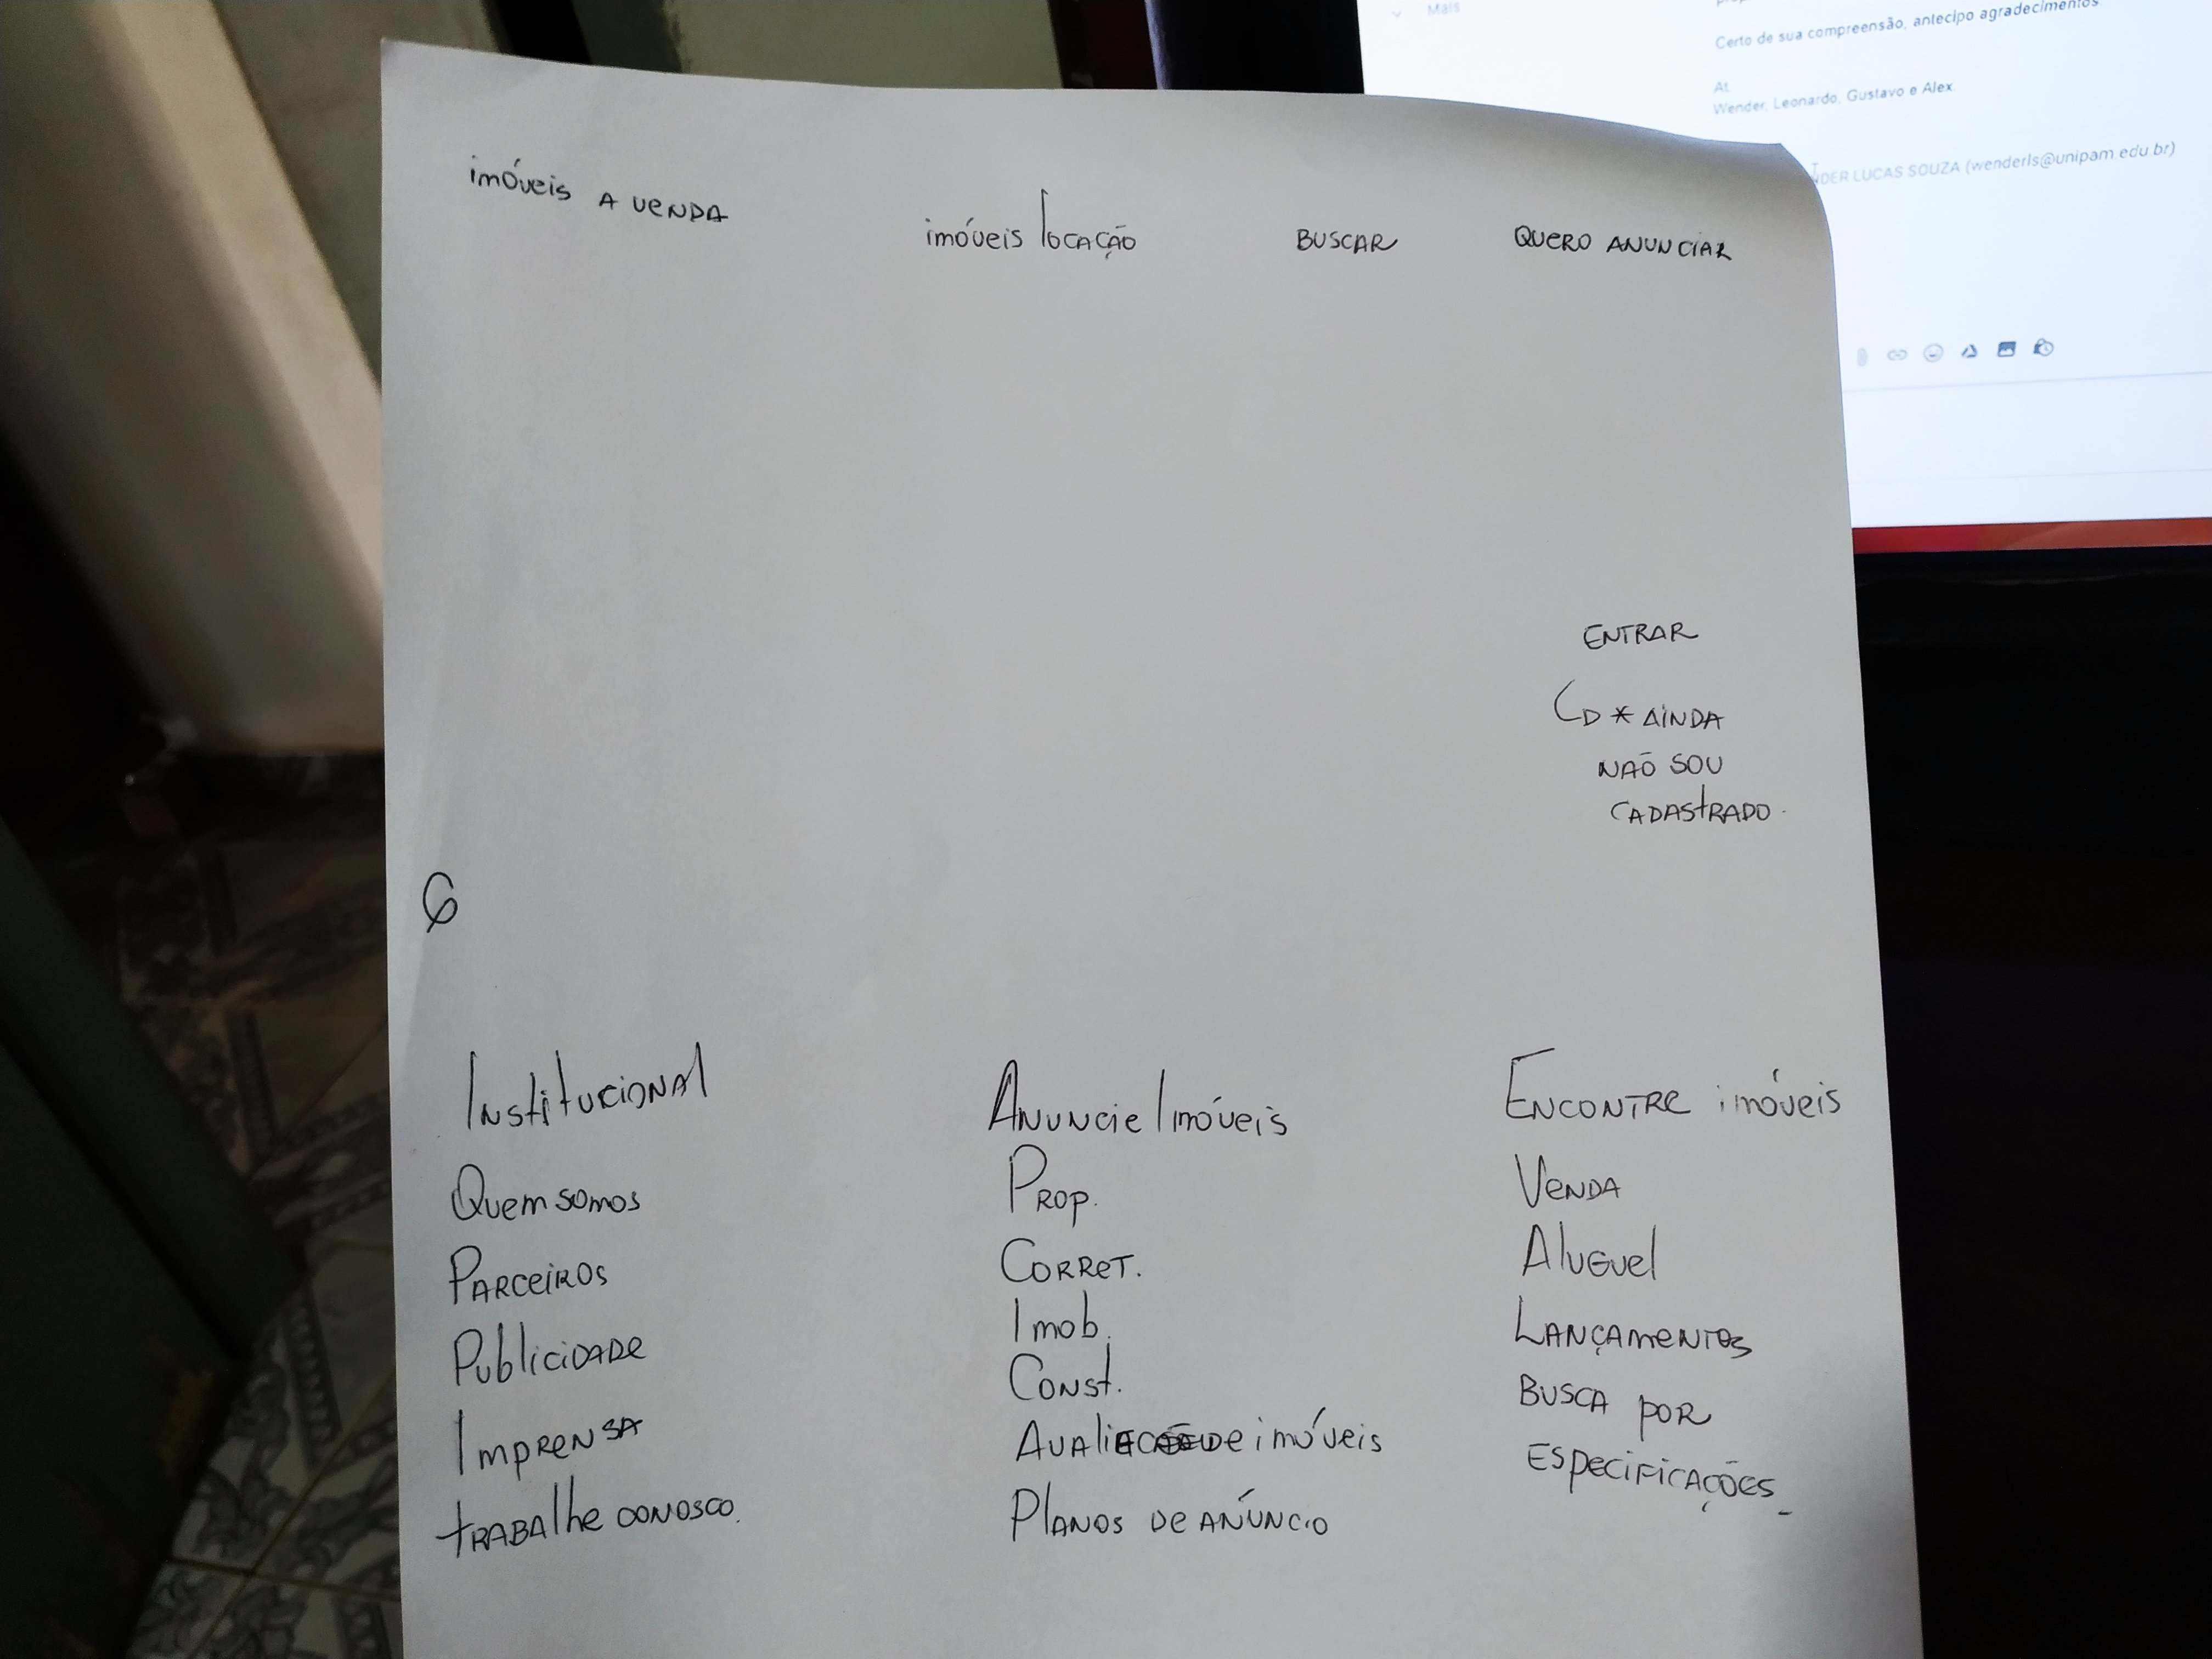 Mais
Certo de sua compreensão, antecipo agradecimentos.
At.
Wender, Leonardo, Gustavo e Alex.
DER LUCAS SOUZA (wenderls@unipam.edu.br)
imóveis A VENDA
imóveis locAÇÃO
BUSCAR
QUERO ANUNCIAR
ENTRAR
* AINDA
NÃO SOU
CADASTRADO.
Institucional
Quem somos
PARCEIROS
PUbliciDADe
IMPRENSA
TRABAlhe CONOSCO.
ANUNcie Imóveis
PROP.
CORReT.
Imob.
CONST.
imóveis
PlANOS De ANÚNCIO
ENCONTRe imóveis
VENDA
AlUGUel
LANÇAMENTOS
BUSCA POR
ESPeciFICAÇÕES